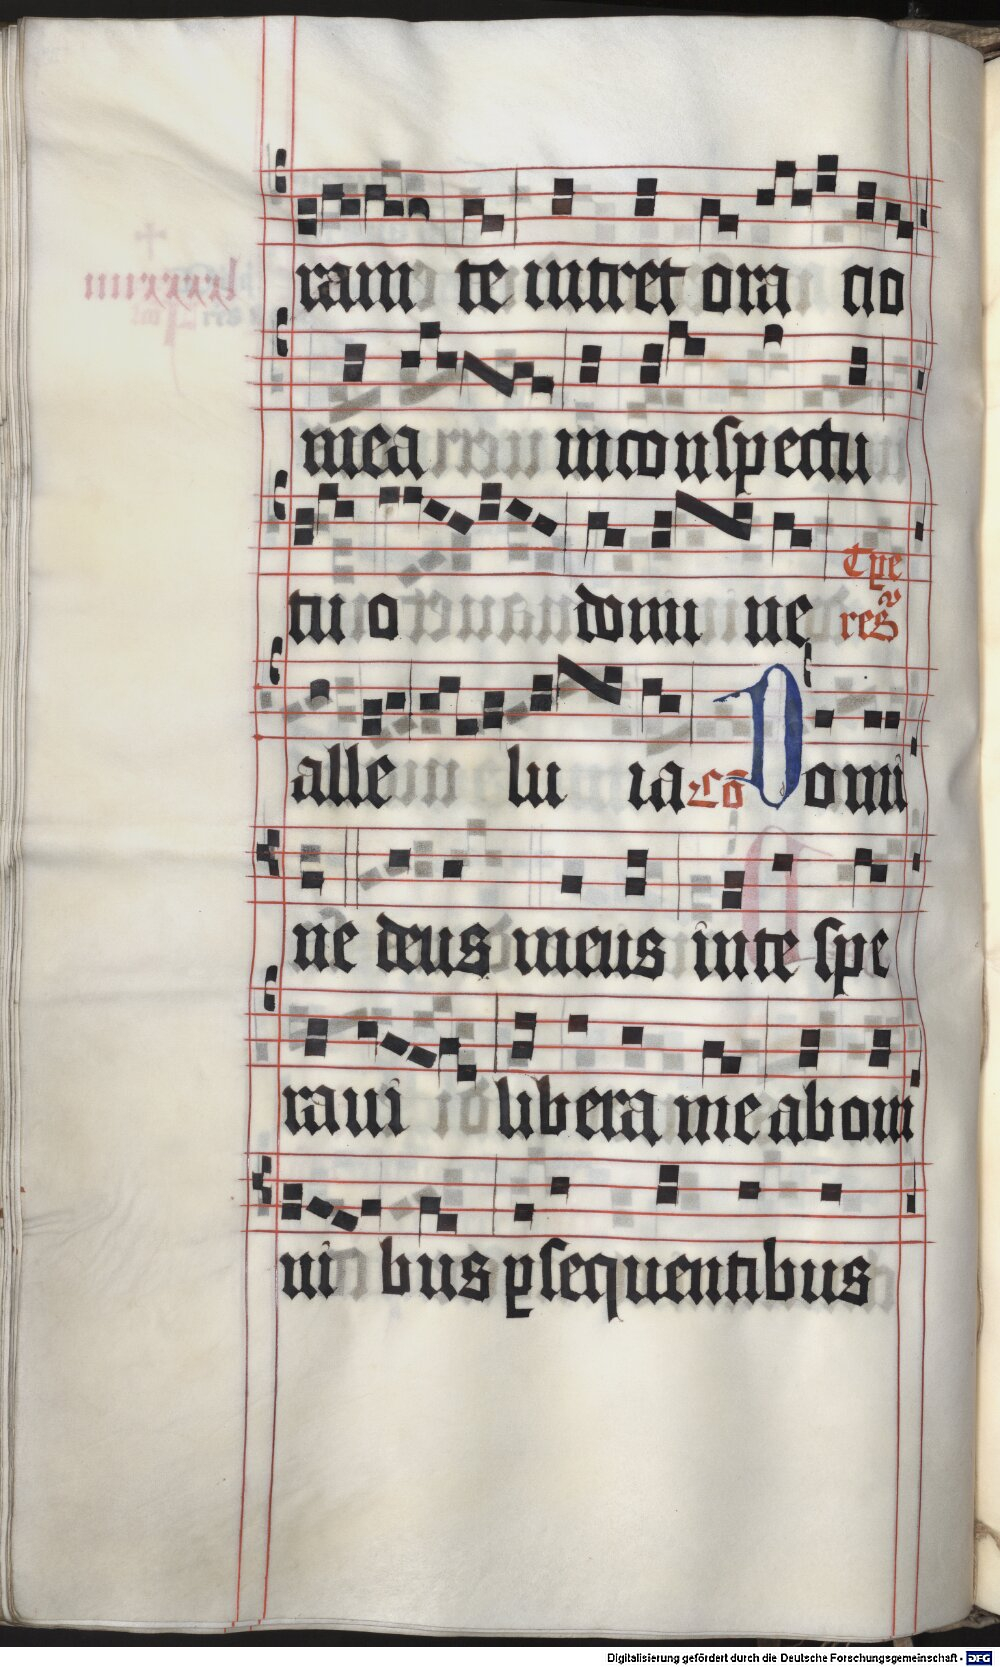 ram te intret ora tio
mea in conspectu
tu o domi ne
Tpe
res
alle lu ia Cō Domi
ne deus meus in te spe
raui libera me ab om
ni bus ꝑsequentibus
Digitalisierung gefördert durch die Deutsche Forschungsgemeinschaft - DFG